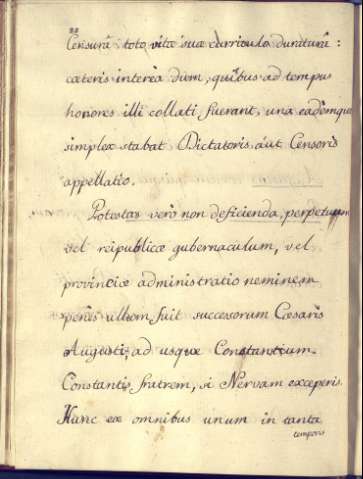 Censurâ toto vitæ suæ curriculo duraturâ:
cæteris intereà dum, quibus ad tempus
honores illi collati fuerant, una eademque
simplex stabat Dictatoris aut Censoris
appellatio.
Potestas verò non deficienda, perpetuum
vel reipublicæ gubernaculum, vel
provinciæ administratio neminem
penès ullum fuit successorum Cæsaris
Augusti, ad usque Constantium
Constantis fratrem, si Nervam exceperis.
Hunc ex omnibus unum in tanta
temporis